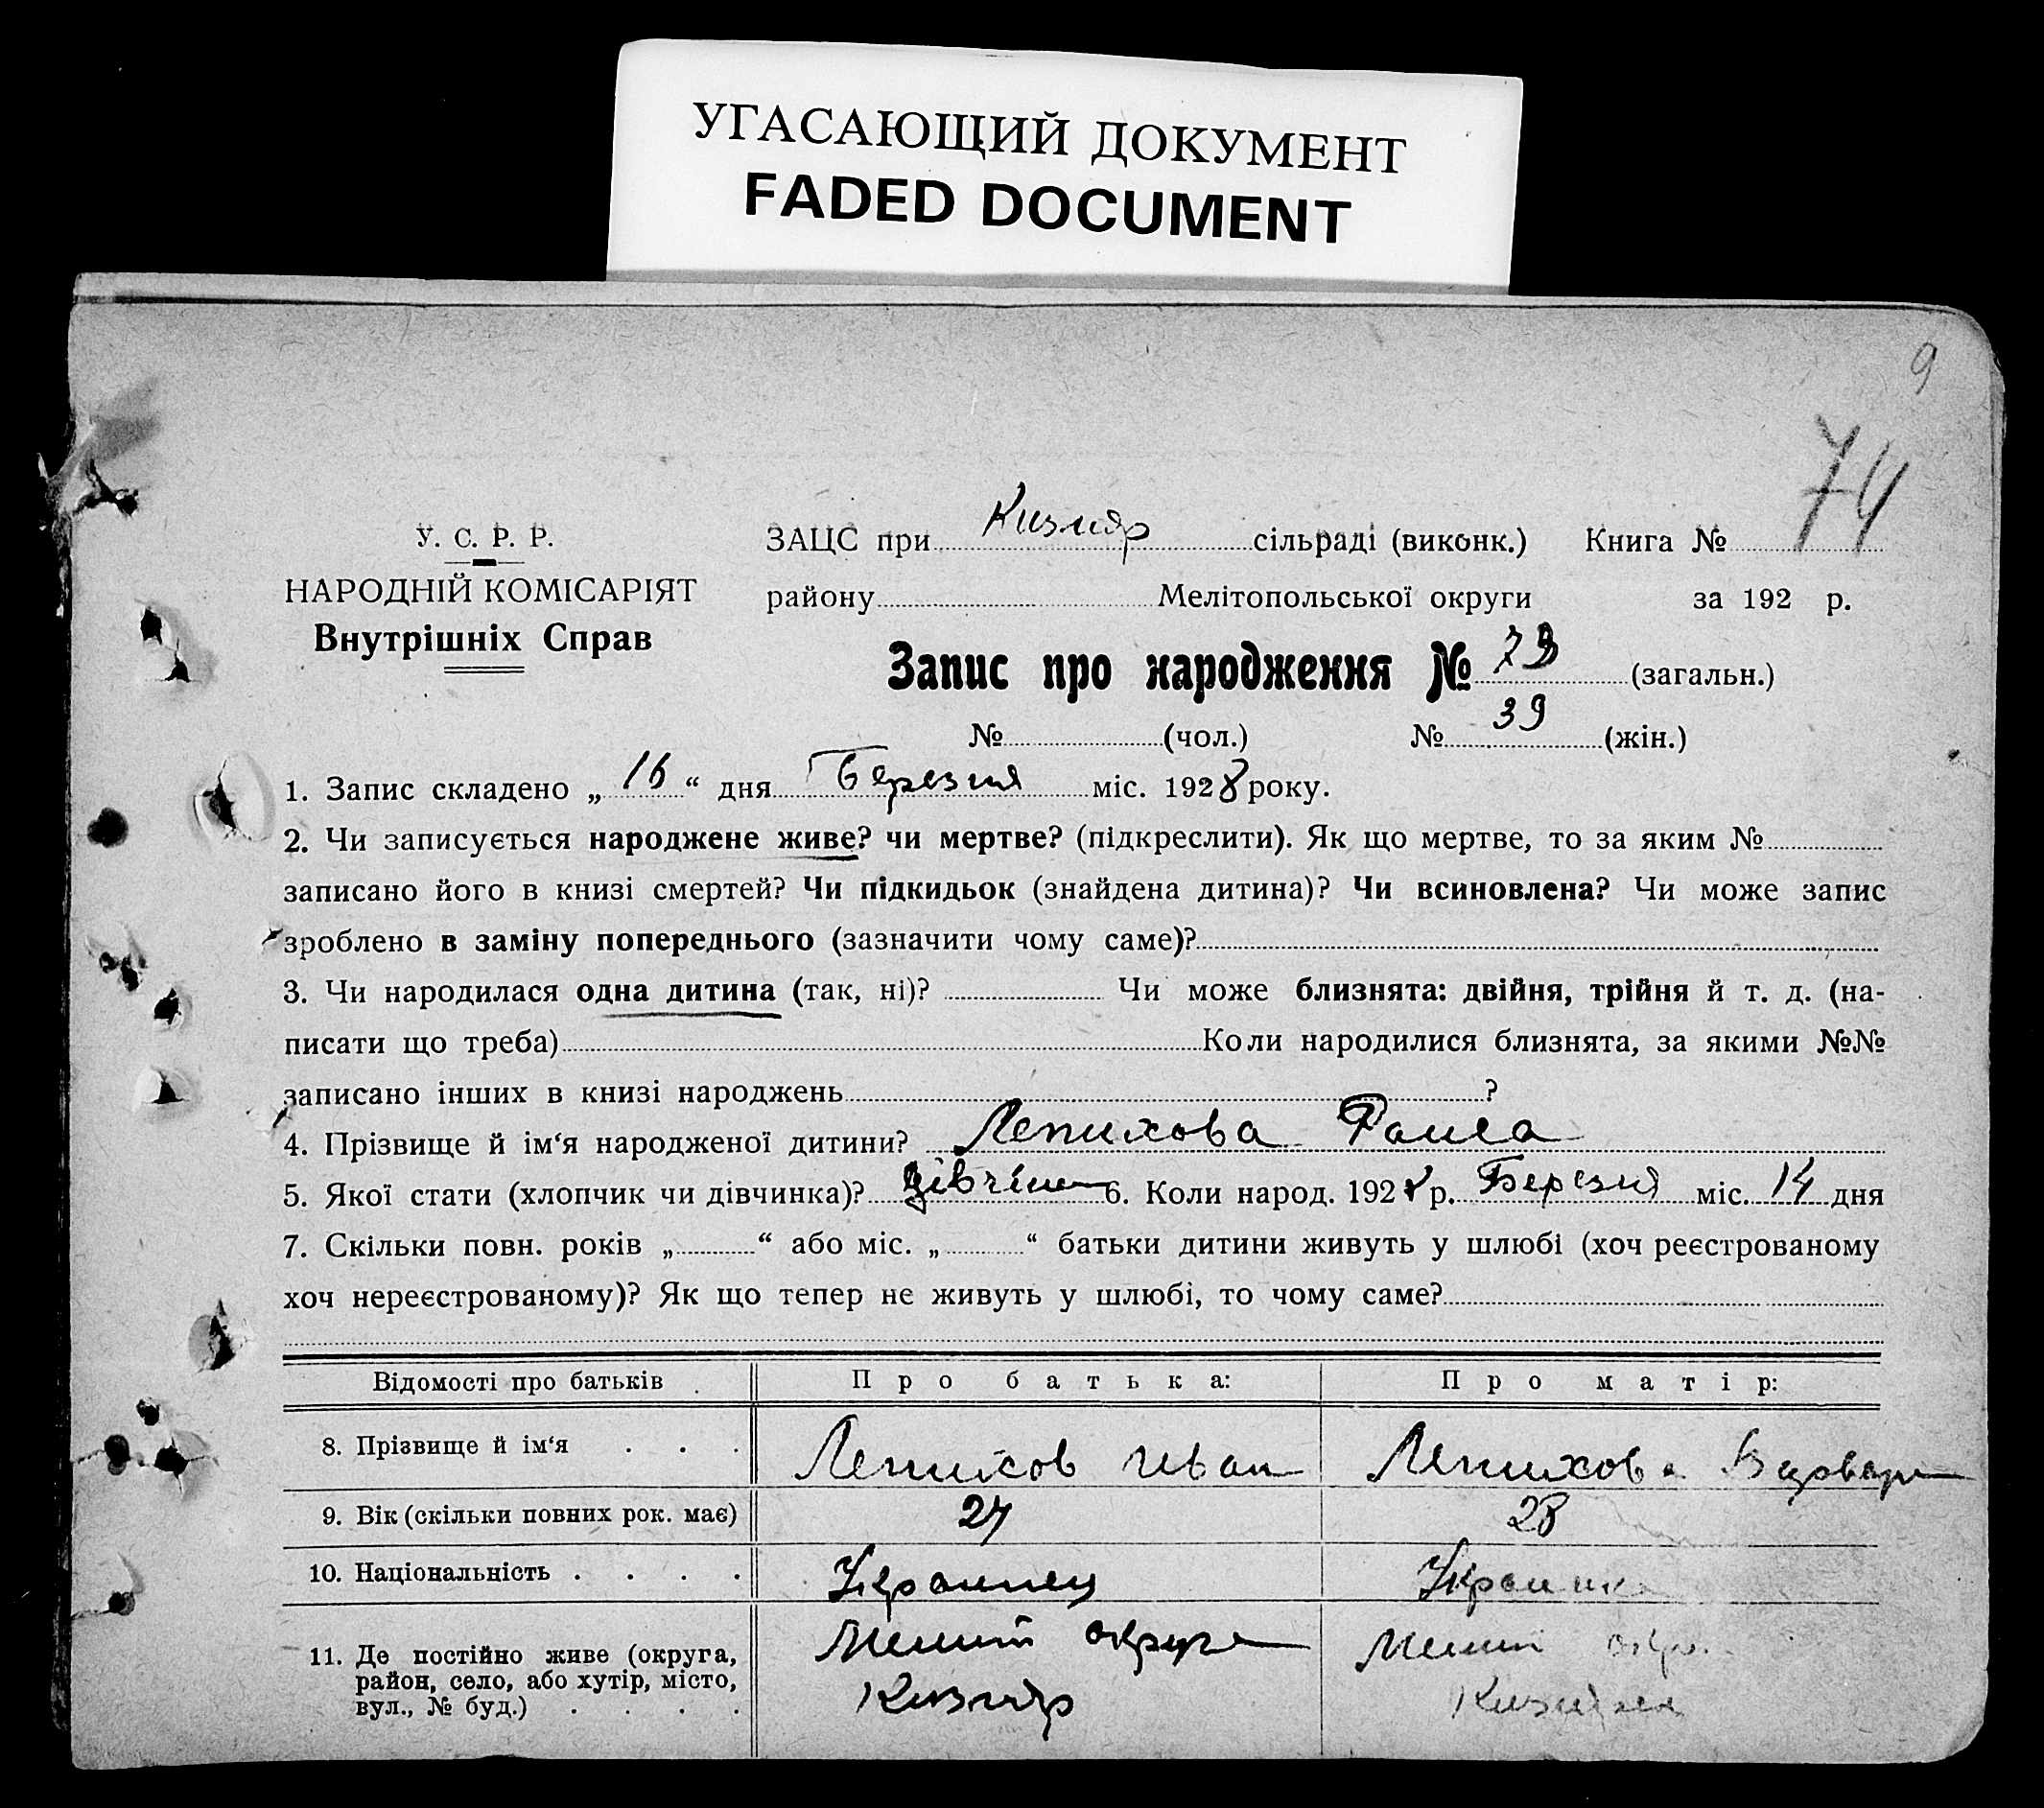 УГАСАЮЩИЙ ДОКУМЕНТ
FADED DOCUMENT
9
74
У. С. Р. Р.
НАРОДНІЙ КОМІСАРІЯТ
Внутрішніх Справ
ЗАЦС при Кизияр сільраді (виконк.) Книга №
району Мелітопольської округи за 192 р.
Запис про народження № 73 (загальн.)
№ (чол.) № 39 (жін.)
1. Запис складено „ 16 “ дня Березня міс. 1928 року.
2. Чи записується народжене живе? чи мертве? (підкреслити). Як що мертве, то за яким №
записано його в книзі смертей? Чи підкидьок (знайдена дитина)? Чи всиновлена? Чи може запис
зроблено в заміну попереднього (зазначити чому саме)?
3. Чи народилася одна дитина (так, ні)? Чи може близнята: двійня, трійня й т. д. (на-
писати що треба) Коли народилися близнята, за якими №№
записано інших в книзі народжень ?
4. Прізвище й ім‘я народженої дитини? Лепихова Раиса
5. Якої стати (хлопчик чи дівчинка)? 6. Коли народ. 1928 р. Березня міс. 14 дня
7. Скільки повн. років „ “ або міс. „ “ батьки дитини живуть у шлюбі (хоч реєстрованому
хоч нереєстрованому)? Як що тепер не живуть у шлюбі, то чому саме?
Відомості про батьків Про батька: Про матір:
8. Прізвище й ім‘я . . . Лепихов Иван Лепихова
9. Вік (скільки повних рок. має) 27 28
10. Національність . . . . Украинец Украинка
11. Де постійно живе (округа,
район, село, або хутір, місто,
вул., № буд.) . . . .
Мелит округа
Кизияр
Мелит окр.